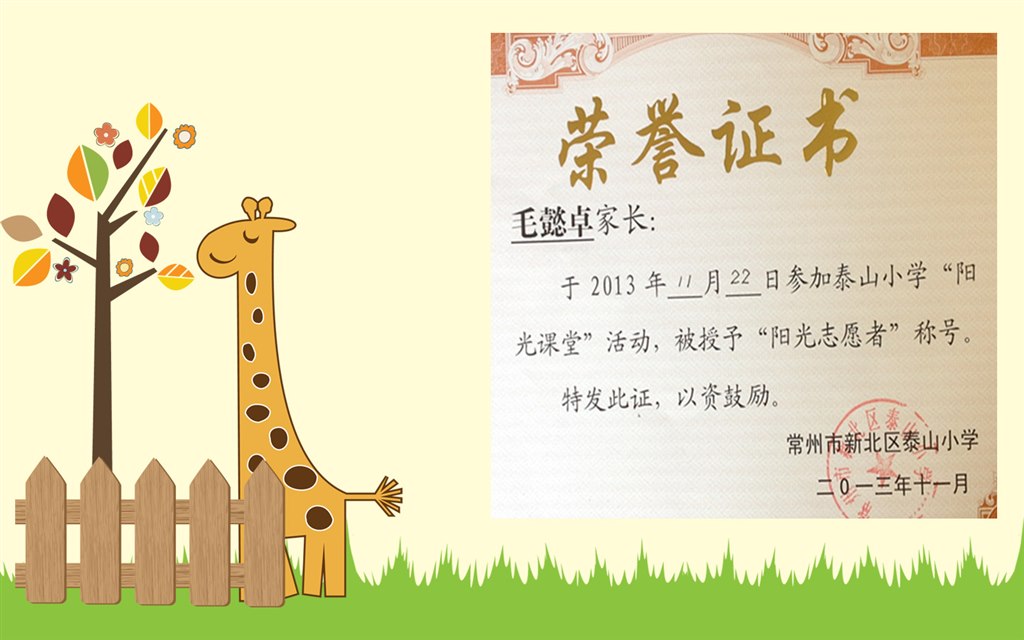 荣誉证书
毛懿卓家长:
于 2013 年 11 月 22 日参加泰山小学“阳
光课堂”活动，被授予“阳光志愿者”称号。
特发此证，以资鼓励。
常州市新北区泰山小学
二0一三年十一月